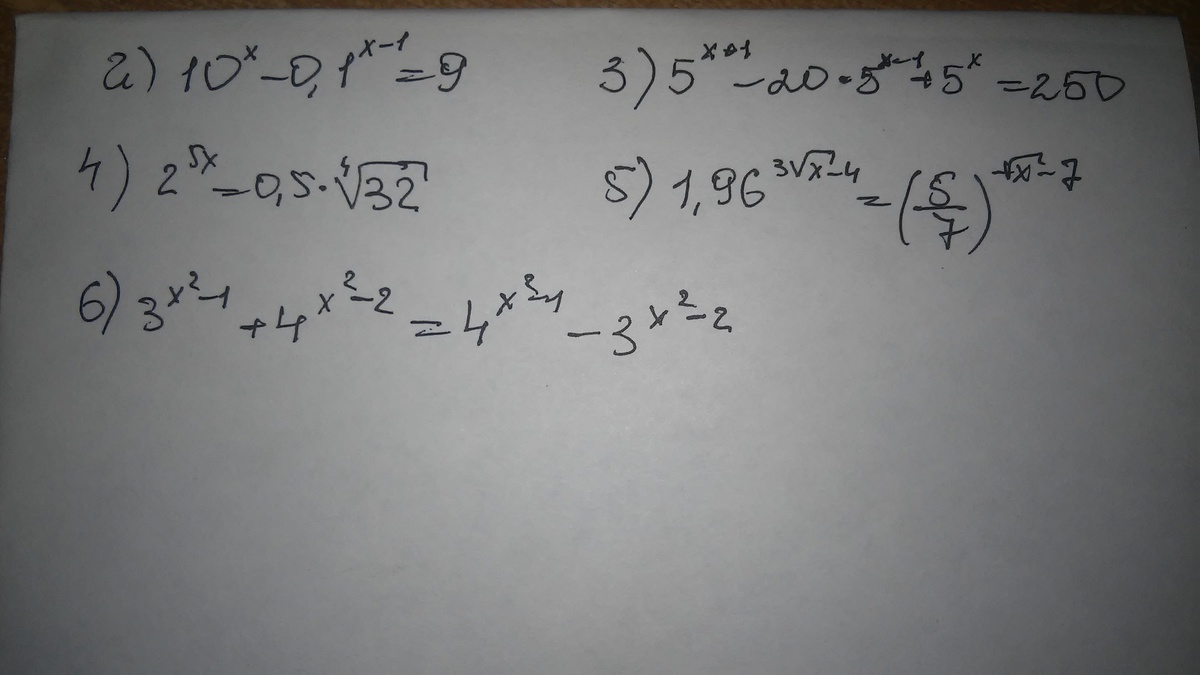 2) 10^x - 0,1^{x-1} = 9
3) 5^{x+1} - 20·5^{x-1} + 5^x = 250
4) 2^{5x} = 0,5·∜32
5) 1,96^{3√x-4} = (5/7)^{-√x-7}
6) 3^{x²-1} + 4^{x²-2} = 4^{x²-1} - 3^{x²-2}